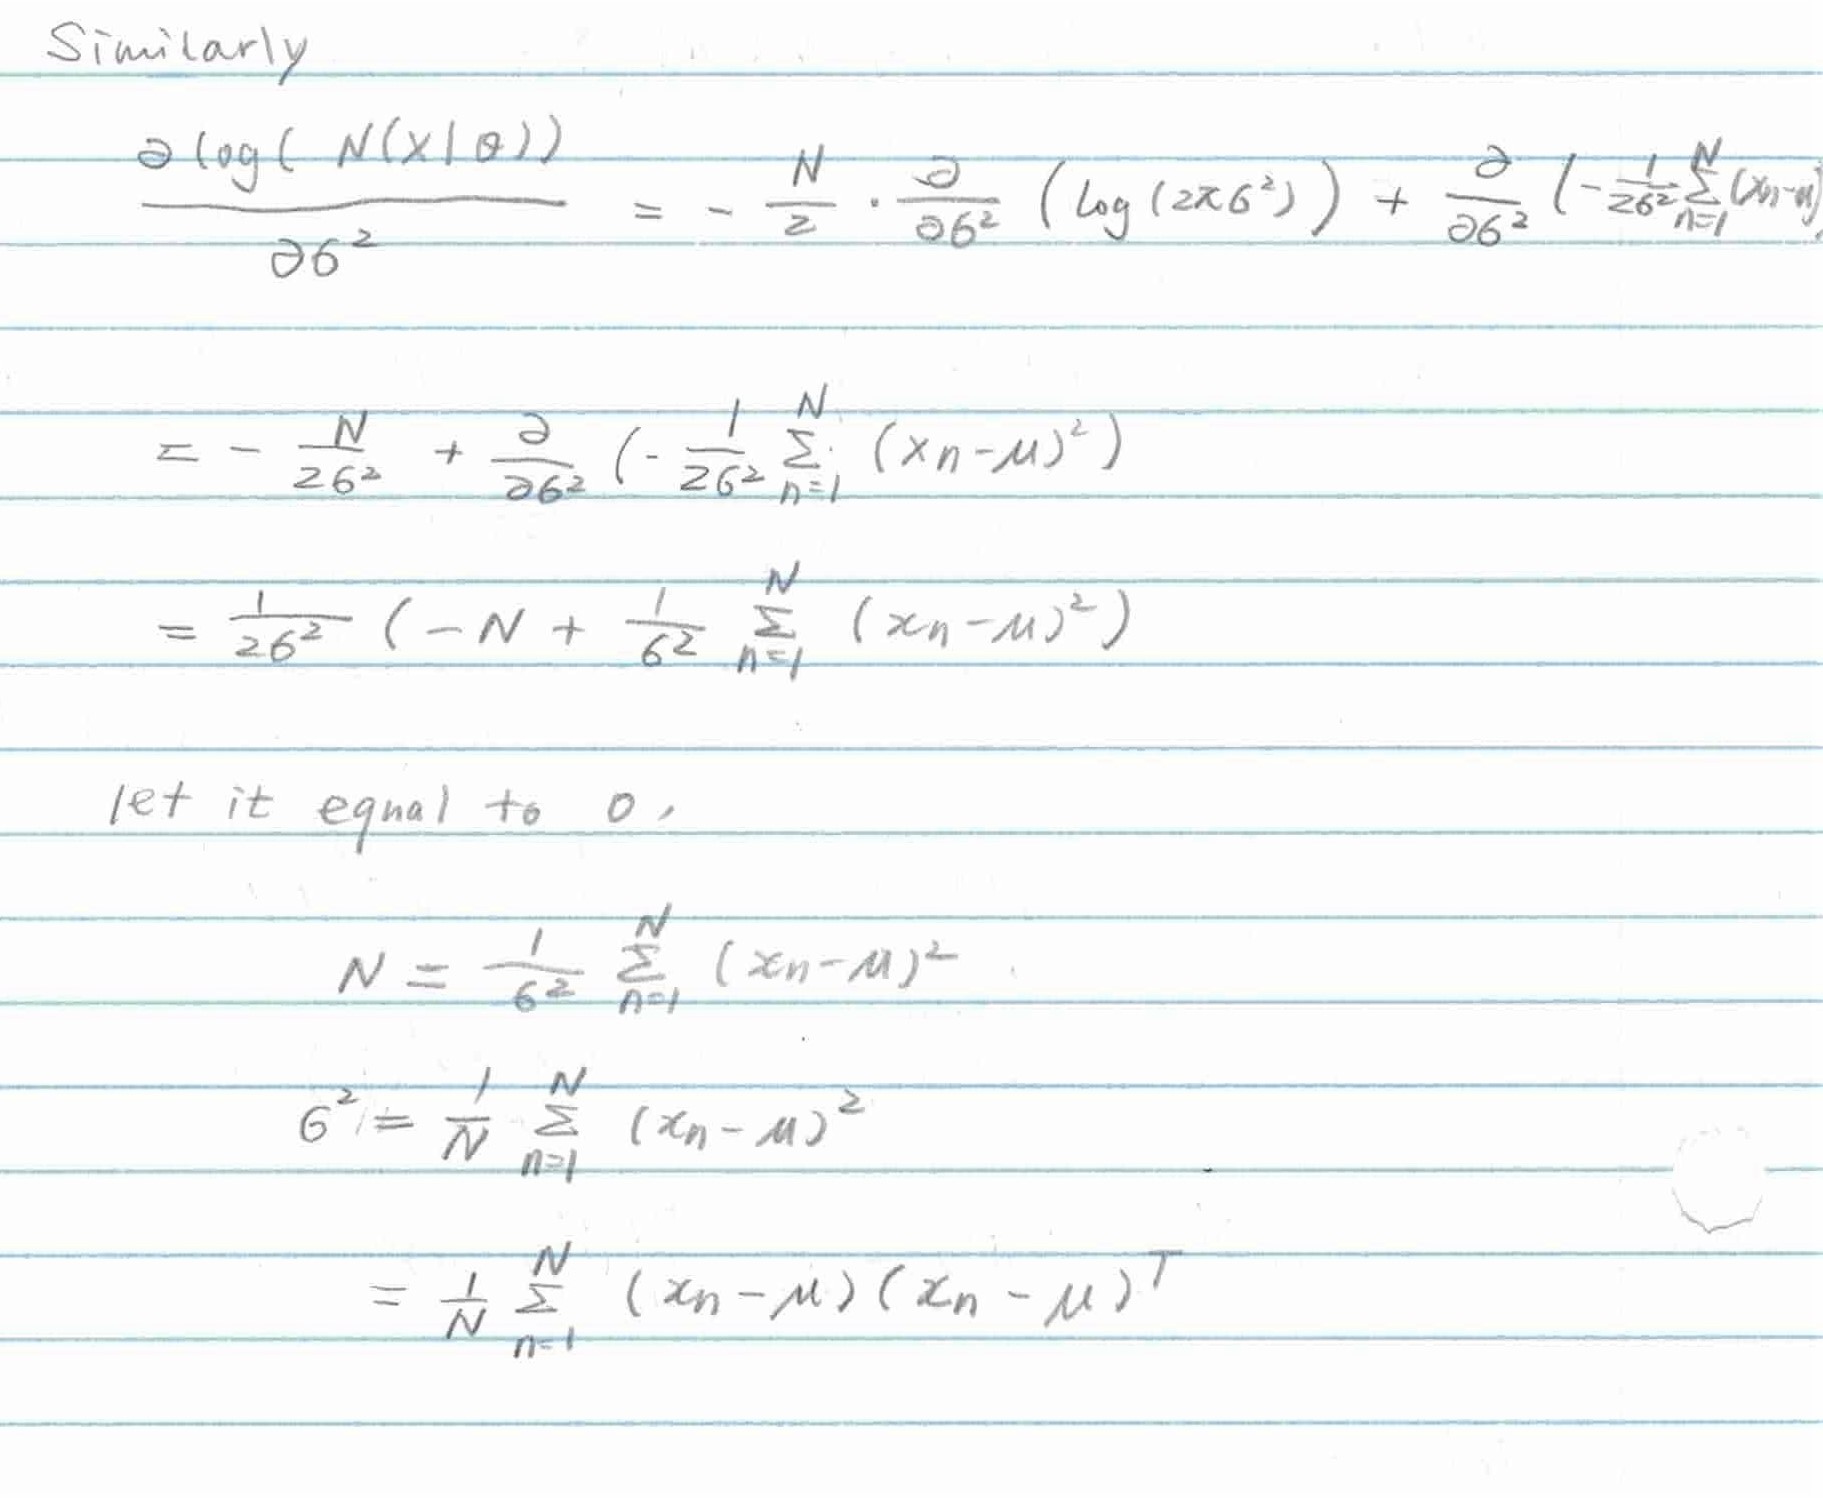 Similarly
∂ log( N(X|θ)) / ∂σ² = - N/2 · ∂/∂σ² (log(2πσ²)) + ∂/∂σ² (- 1/2σ² Σ_{n=1}^{N} (xn-μ)
= - N/2σ² + ∂/∂σ² (- 1/2σ² Σ_{n=1}^{N} (xn-μ)²)
= 1/2σ² (-N + 1/σ² Σ_{n=1}^{N} (xn-μ)²)
let it equal to 0,
N = 1/σ² Σ_{n=1}^{N} (xn-μ)²
σ² = 1/N Σ_{n=1}^{N} (xn-μ)²
= 1/N Σ_{n=1}^{N} (xn-μ)(xn-μ)^T